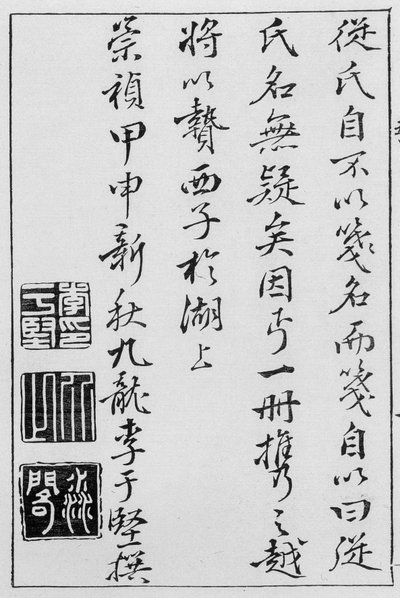 從氏自不以箋名而箋自以曰從
氏名無疑矣因丐一冊攜之越
將以贄西子於湖上
崇禎甲申新秋九龍李于堅撰